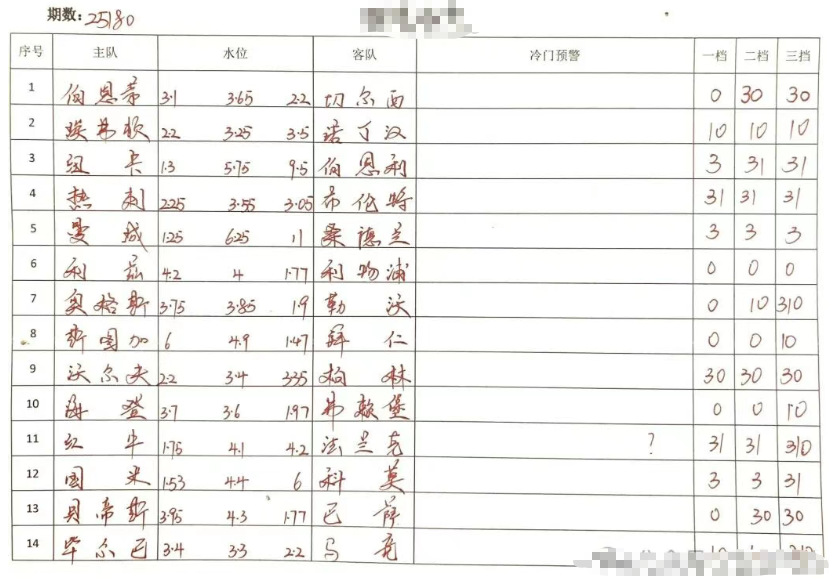 期数：25180
序号 主队 水位 客队 冷门预警 一档 二档 三挡
1 伯恩茅 3.1 3.65 2.2 切尔西 0 30 30
2 埃弗顿 2.2 3.25 3.5 诺丁汉 10 10 10
3 纽卡 1.3 5.75 9.5 伯恩利 3 31 31
4 热刺 2.25 3.55 3.05 布伦特 31 31 31
5 曼城 1.25 6.25 11 桑德兰 3 3 3
6 利兹 4.2 4 1.77 利物浦 0 0 0
7 奥格斯 3.75 3.85 1.9 勒沃 0 10 310
8 斯图加 6 4.9 1.47 拜仁 0 0 10
9 沃尔夫 2.2 3.4 3.35 柏林 30 30 30
10 海登 3.7 3.6 1.97 弗赖堡 0 0 10
11 红牛 1.75 4.1 4.2 法兰克 ? 31 31 310
12 国米 1.53 4.4 6 科莫 3 3 31
13 贝帝斯 3.95 4.3 1.77 巴萨 0 30 30
14 毕尔巴 3.4 3.3 2.2 马竞